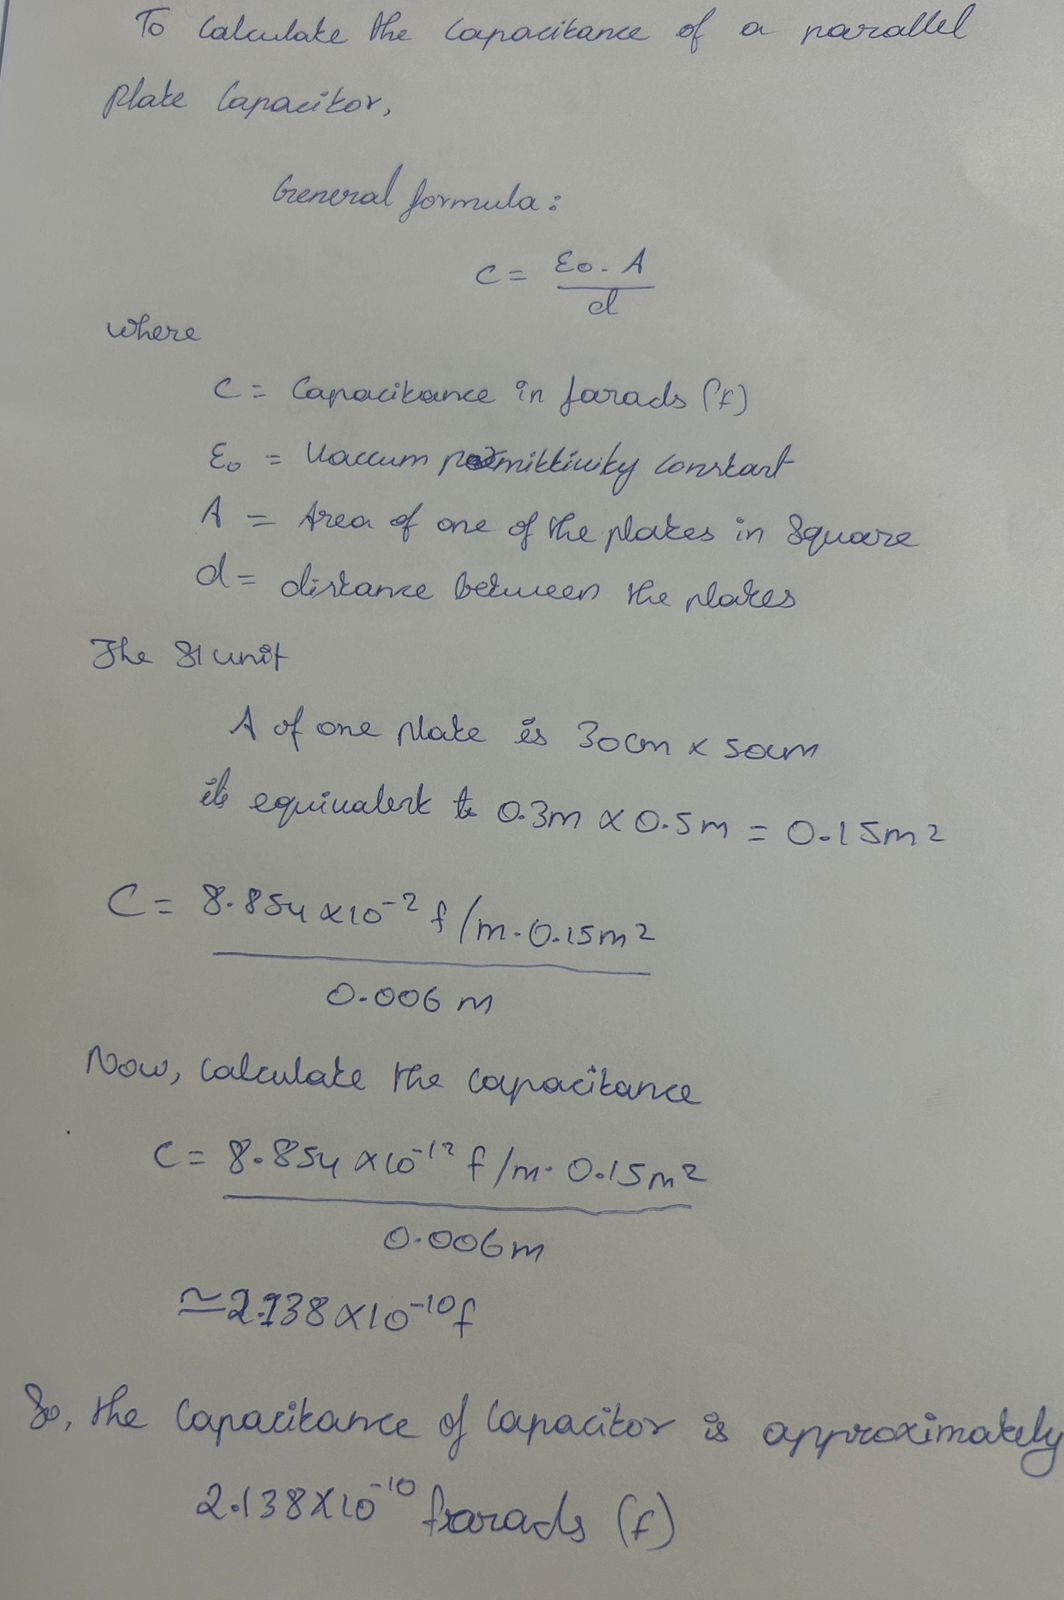 To Calculate the Capacitance of a parallel
Plate Capacitor,
General formula:
C = ε₀. A / d
where
C = Capacitance in farads (f)
ε₀ = Vaccum permittivity constant
A = Area of one of the plates in Square
d = distance between the plates
The SI unit
A of one plate is 30cm x 50cm
its equivalent to 0.3m x 0.5m = 0.15m2
C = 8.854 x10⁻² f/m. 0.15m²
0.006 m
Now, Calculate the capacitance
C = 8.854 x10⁻¹² f/m. 0.15m²
0.006m
≃2.138 x10⁻¹⁰f
So, the Capacitance of Capacitor is approximately
2.138X10⁻¹⁰ farads (f)